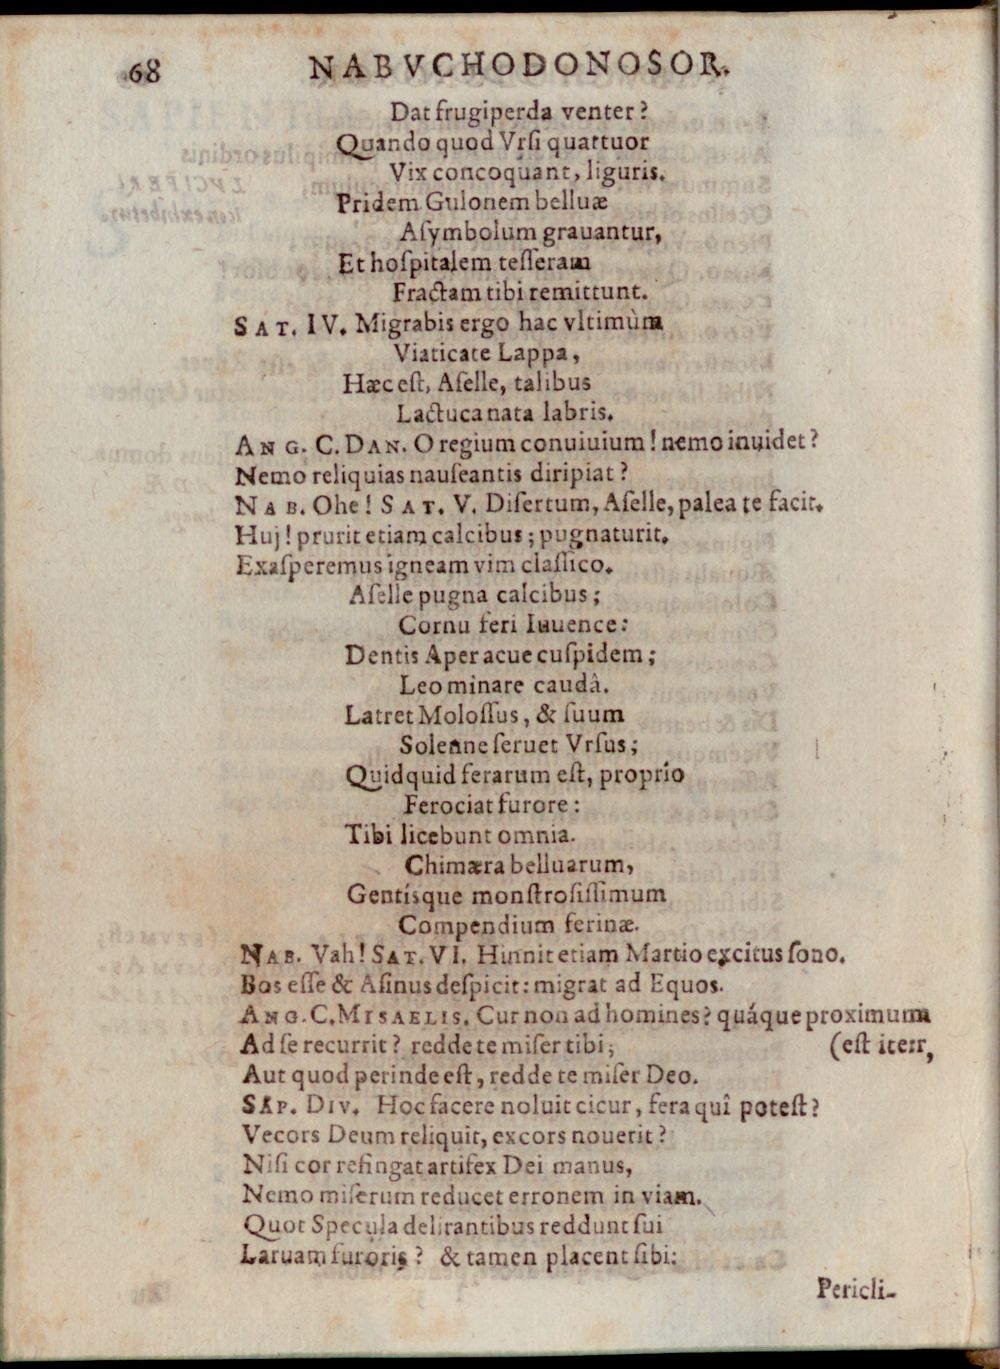 68 NABVCHODONOSOR.
Dat frugiperda venter?
Quando quod Vrſi quattuor
Vix concoquant, liguris.
Pridem Gulonem belluæ
Aſymbolum grauantur,
Et hoſpitalem teſſeram
Fractam tibi remittunt.
SAT. IV. Migrabis ergo hac vltimùm
Viaticate Lappa,
Hæc eſt, Aſelle, talibus
Lactuca nata labris.
ANG. C. DAN. O regium conuiuium! nemo inuidet?
Nemo reliquias nauſeantis diripiat?
NAB. Ohe! SAT. V. Diſertum, Aſelle, palea te facit.
Huj! prurit etiam calcibus; pugnaturit.
Exaſperemus igneam vim claſſico.
Aſelle pugna calcibus;
Cornu feri Iuuence:
Dentis Aper acue cuſpidem;
Leo minare caudâ.
Latret Moloſſus, & ſuum
Solenne ſeruet Vrſus;
Quidquid ferarum eſt, proprio
Ferociat furore:
Tibi licebunt omnia.
Chimæra belluarum,
Gentiſque monſtroſiſſimum
Compendium ferinæ.
NAB. Vah! SAT. VI. Hinnit etiam Martio excitus ſono.
Bos eſſe & Aſinus deſpicit: migrat ad Equos.
ANG. C. MISAELIS. Cur non ad homines? quáque proximum
Ad ſe recurrit? redde te miſer tibi; (eſt iter,
Aut quod perinde eſt, redde te miſer Deo.
SAP. DIV. Hoc facere noluit cicur, fera quî poteſt?
Vecors Deum reliquit, excors nouerit?
Niſi cor refingat artifex Dei manus,
Nemo miſerum reducet erronem in viam.
Quot Specula delirantibus reddunt ſui
Laruam furoris? & tamen placent ſibi:
Pericli-